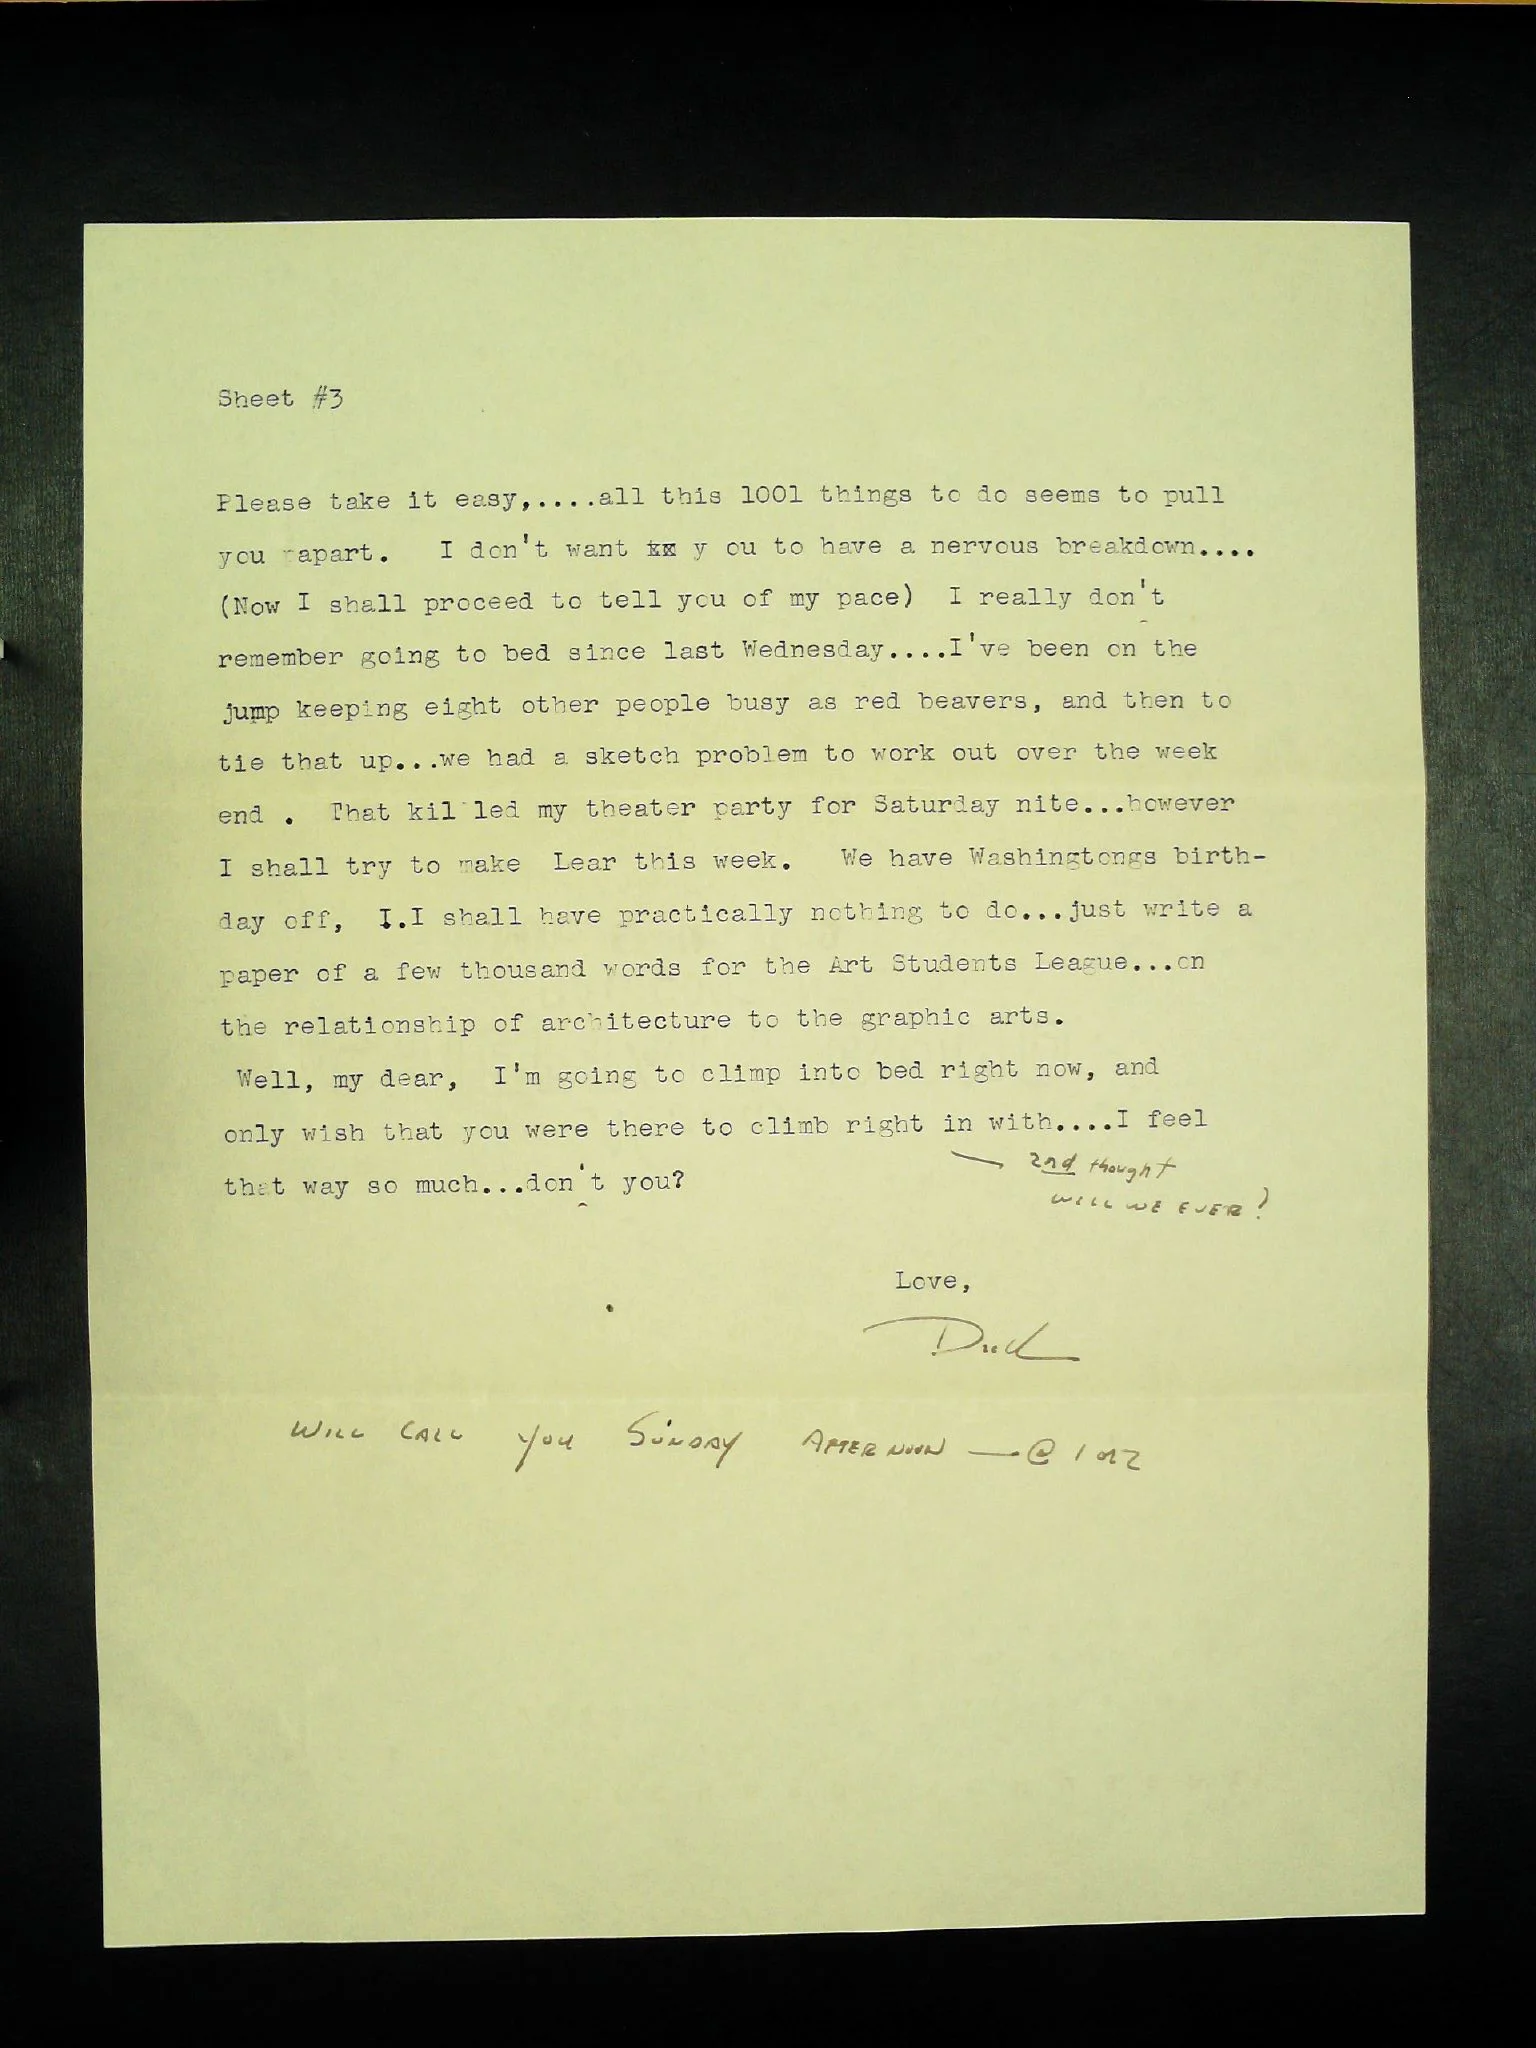 Sheet #3
Please take it easy,.....all this 1001 things to do seems to pull
you apart. I don't want xx y ou to have a nervous breakdown....
(Now I shall proceed to tell you of my pace) I really don't
remember going to bed since last Wednesday....I've been on the
jump keeping eight other people busy as red beavers, and then to
tie that up...we had a sketch problem to work out over the week
end . That kil led my theater party for Saturday nite...however
I shall try to make Lear this week. We have Washingtongs birth-
day off, I.I shall have practically nothing to do...just write a
paper of a few thousand words for the Art Students League...on
the relationship of architecture to the graphic arts.
Well, my dear, I'm going to climp into bed right now, and
only wish that you were there to climb right in with....I feel
that way so much...don't you?
— 2nd thought
WILL WE EVER?
Love,
Dick
WILL CALL YOU SUNDAY AFTERNOON — @ 1 or 2